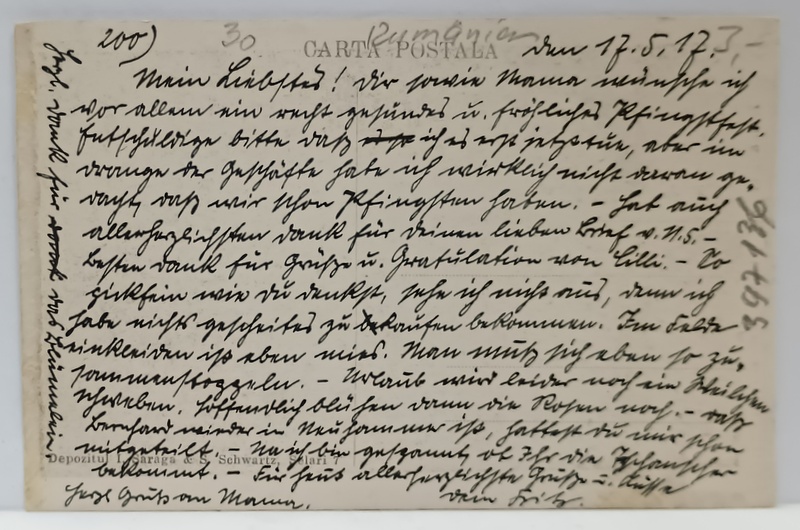 200) 30 Rumänien
CARTA POSTALA den 17.5.17. 3,-
Mein Liebstes! Dir sowie Mama wünsche ich
vor allem ein recht gesundes u. fröhliches Pfingstfest.
Entschuldige bitte daß ich es erst jetzt tue, aber im
drange der Geschäfte habe ich wirklich nicht daran ge-
dacht, daß wir schon Pfingsten haben. – Hab auch
allerherzlichsten dank für deinen lieben Brief v. 11.5. –
Besten dank für Grüße u. Gratulation von Cilli. – So
pickfein wie du denkst, sehe ich nicht aus, denn ich
habe nichts gescheites zu kaufen bekommen. Im Felde
einkleiden ist eben mies. Man muß sich eben so zu-
sammenstoppeln. – Urlaub wird leider noch ein Weilchen
schweben. Hoffendlich blühen dann die Rosen noch. – daß
Bernhard wieder in Neuhammer ist, hattest du mir schon
mitgeteilt. – Na ich bin gespannt, ob Ihr die
Depozitul I. Saraga & S. Schwartz, Selari 7
bekommt. – Für heut allerherzlichste Grüße u. Küsse
Herzl. Gruß an Mama. dein Fritz.
Herzl. dank für das Blümelein.
397136